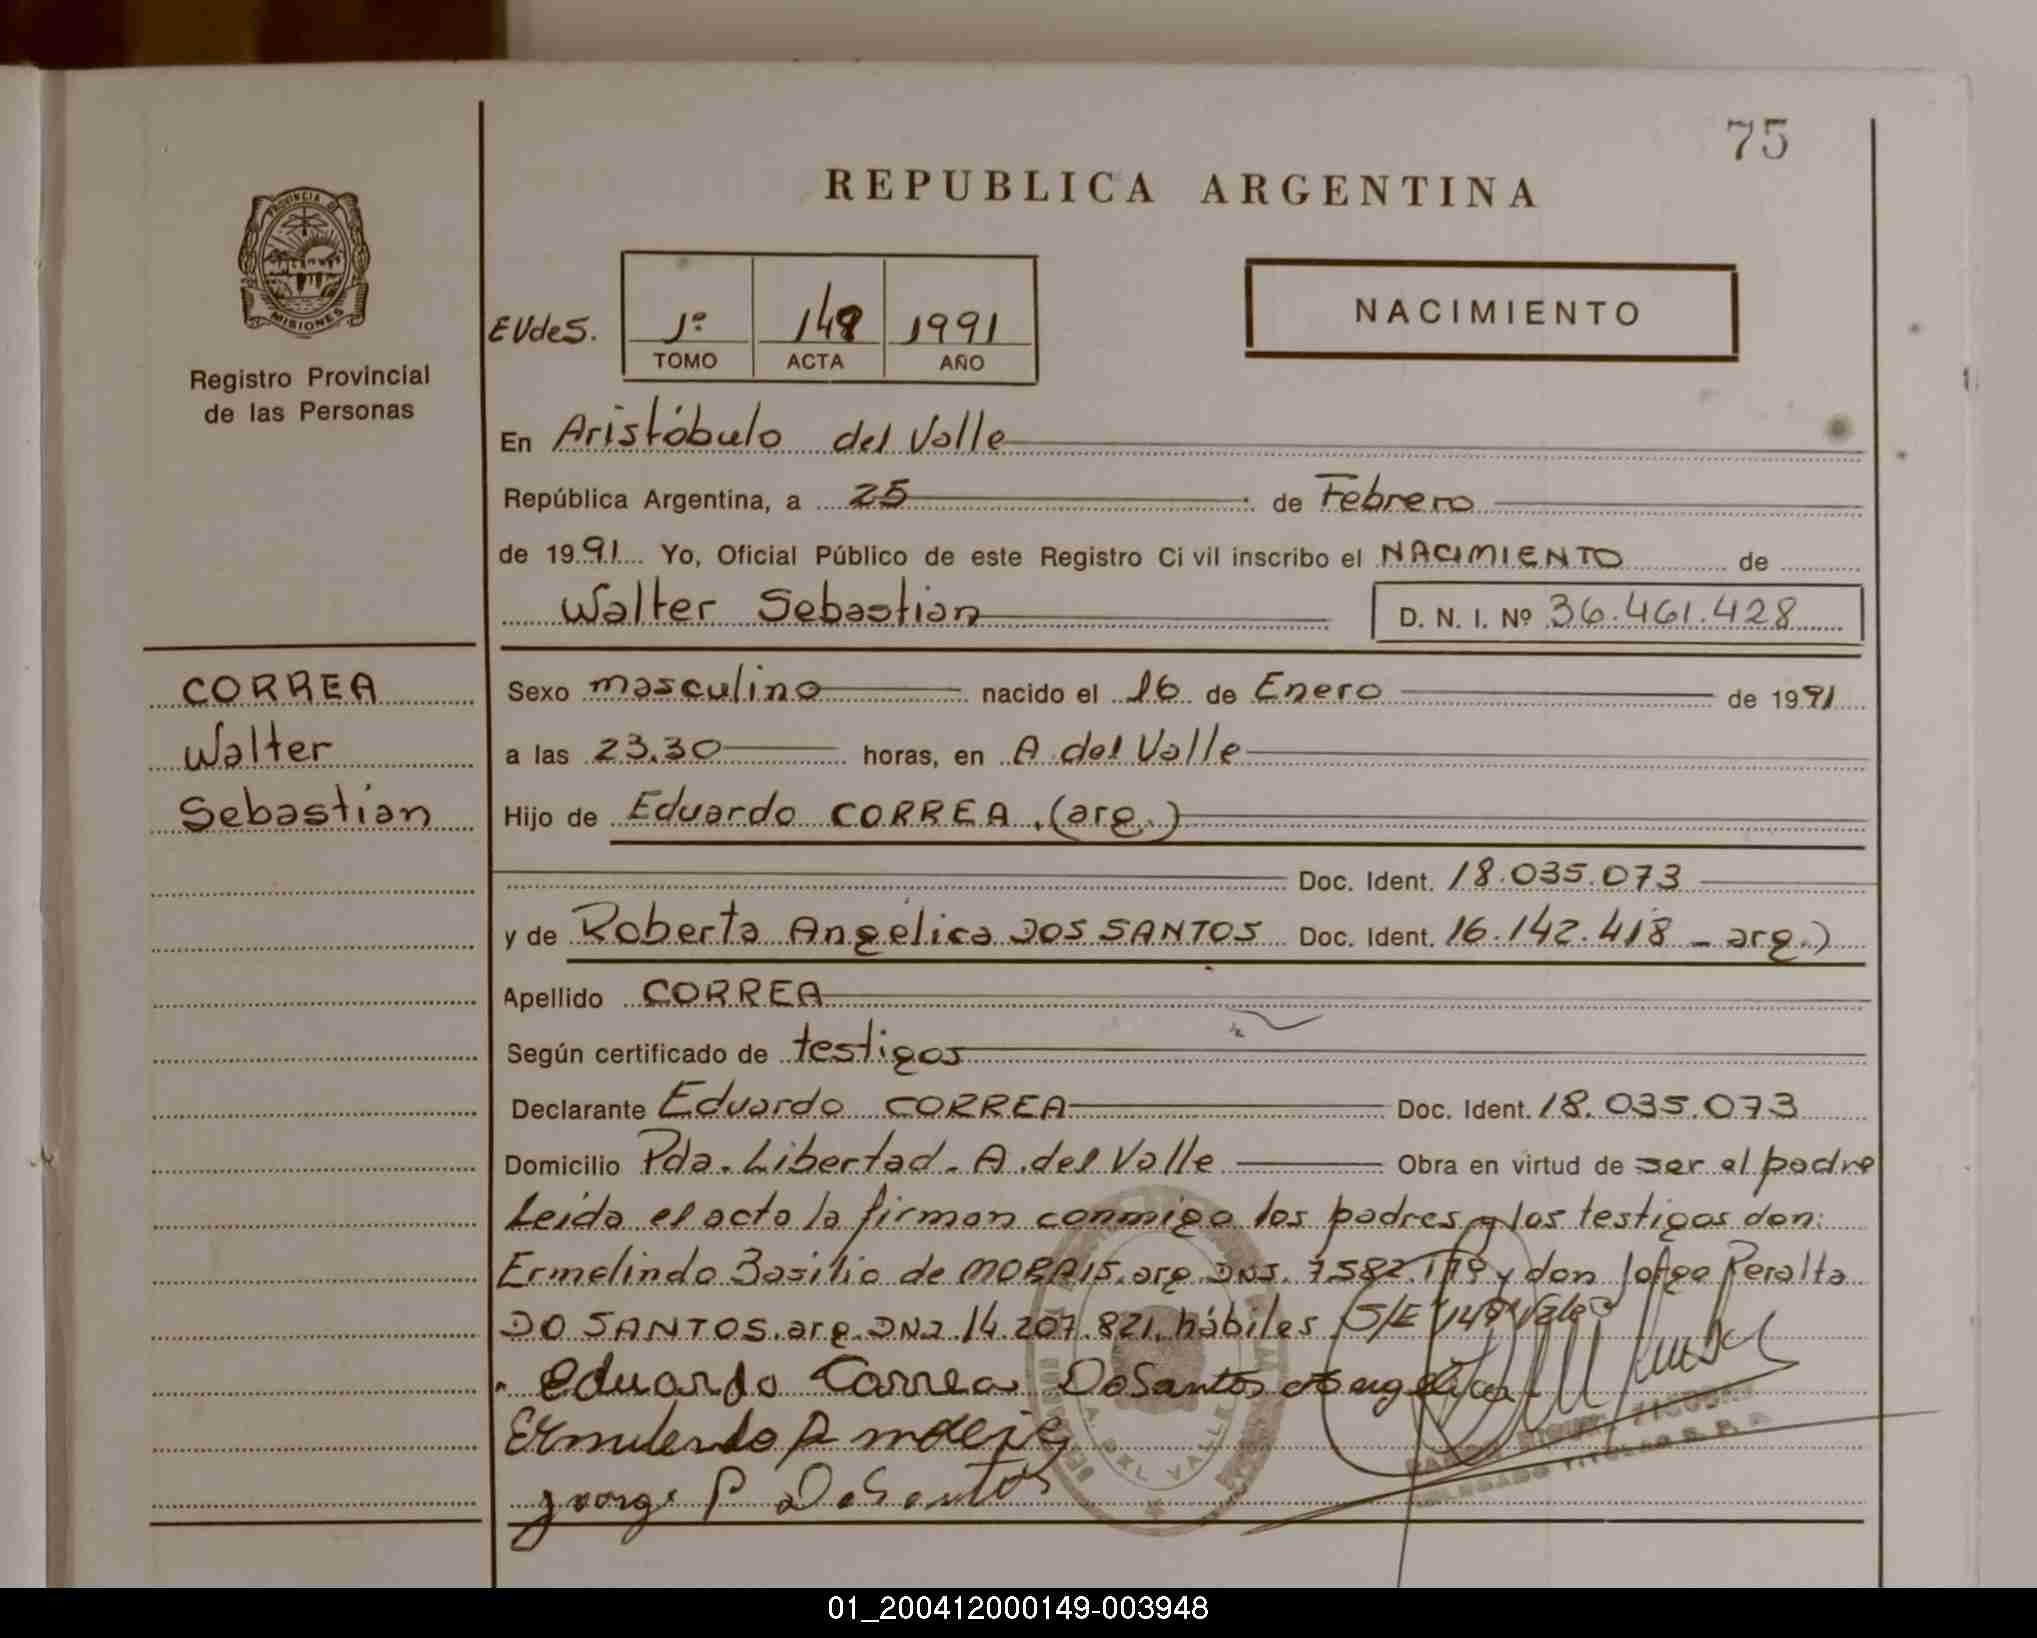 75
REPUBLICA ARGENTINA
PROVINCIA DE
MISIONES
Registro Provincial
de las Personas
EVdeS. 1º 148 1991
TOMO ACTA AÑO
NACIMIENTO
En Aristóbulo del Valle
República Argentina, a 25 de Febrero
de 1991 Yo, Oficial Público de este Registro Ci vil inscribo el NACIMIENTO de
Walter Sebastian D. N. I. Nº 36.461.428
CORREA
Walter
Sebastian
Sexo masculino nacido el 16 de Enero de 1991
a las 23.30 horas, en A. del Valle
Hijo de Eduardo CORREA. (arg.)
Doc. Ident. 18.035.073
y de Roberta Angélica DOS SANTOS Doc. Ident. 16.142.418 - arg.)
Apellido CORREA
Según certificado de testigos
Declarante Eduardo CORREA Doc. Ident. 18.035.073
Domicilio Pda. Libertad. A. del Valle Obra en virtud de ser el padre
Leída el acta la firman conmigo los padres y los testigos don:
Ermelindo Basilio de MORAIS. arg. DNI. 7.582.179 y don Jorge Peralta
DO SANTOS. arg. DNI 14.207.821. hábiles. S/E 148 Vale
Eduardo Correa DoSantos Angelica
A. DEL VALLE
DELEGADO TITULAR R. P. P.
01_200412000149-003948